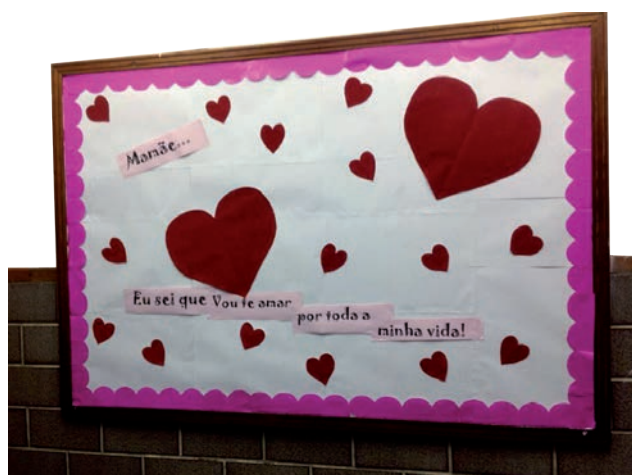 Mamãe...
Eu sei que Vou te amar
por toda a
minha vida!